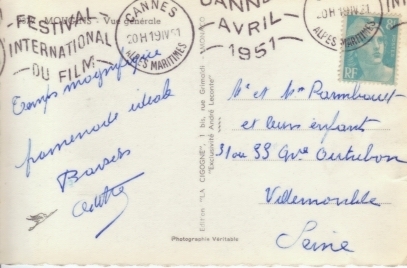 MOUGINS - Vue générale
FESTIVAL
INTERNATIONAL
DU FILM
CANNES
20H 19 IV 51
ALPES MARITIMES
CANNES
AVRIL
1951
20H 19 IV 51
ALPES MARITIMES
RF
Temps magnifique
promenade idéale
Baisers
Odette
Edition "LA CIGOGNE", 1 bis, rue Grimaldi - MONACO
"Exclusivité André Leconte"
Photographie Véritable
Mr et Mme
et leurs enfants
31 ou 33 Gve
Villemomble
Seine